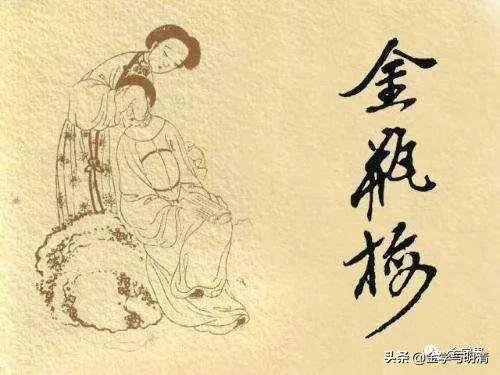 金瓶梅
头条 @金学与明清